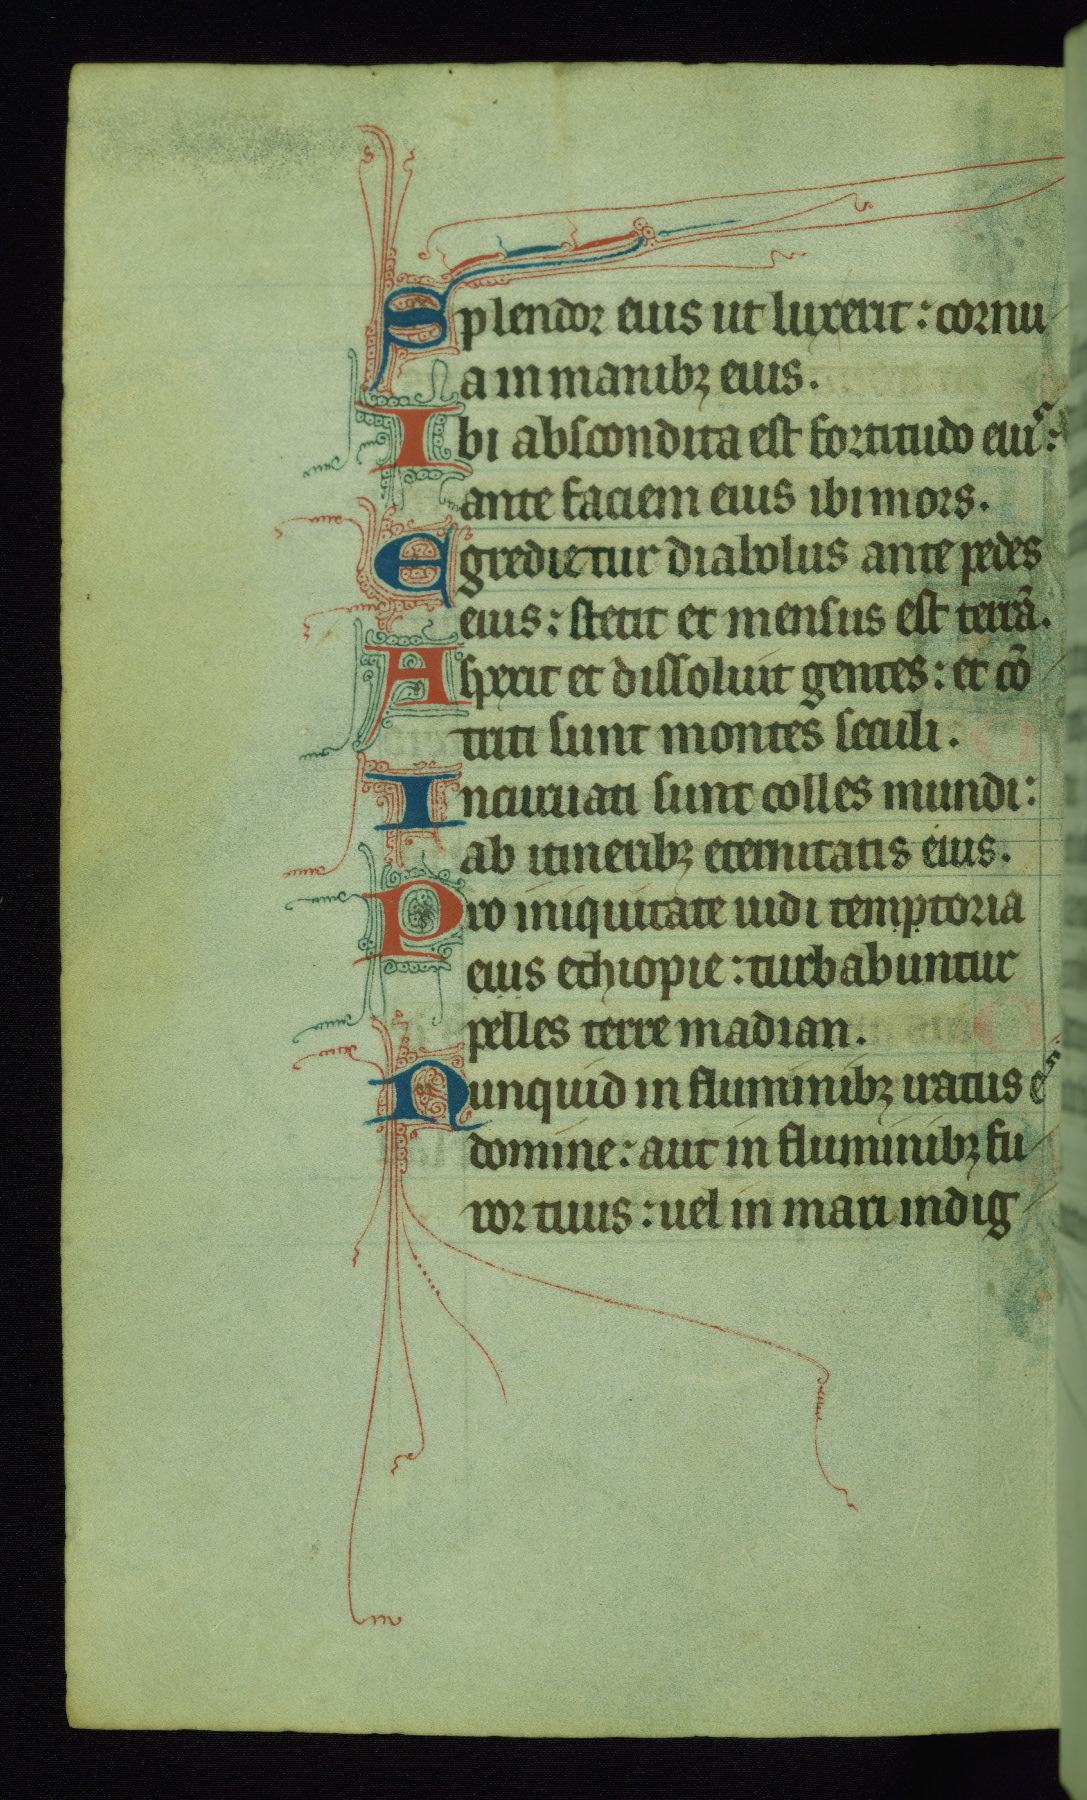 Splendor eius ut lux erit: cornu
a in manibꝫ eius.
Ibi abscondita est fortitudo eiuꝰ:
ante faciem eius ibi mors.
Egredietur diabolus ante pedes
eius: stetit et mensus est terrā.
Aspexit et dissoluit gentes: et cō
triti sunt montes seculi.
Incuruati sunt colles mundi:
ab itineribꝫ eternitatis eius.
Pro iniquitate uidi temptoria
eius ethiopie: turbabuntur
pelles terre madian.
Nunquid in fluminibꝫ iratus es
domine: aut in fluminibꝫ fu
ror tuus: uel in mari indig